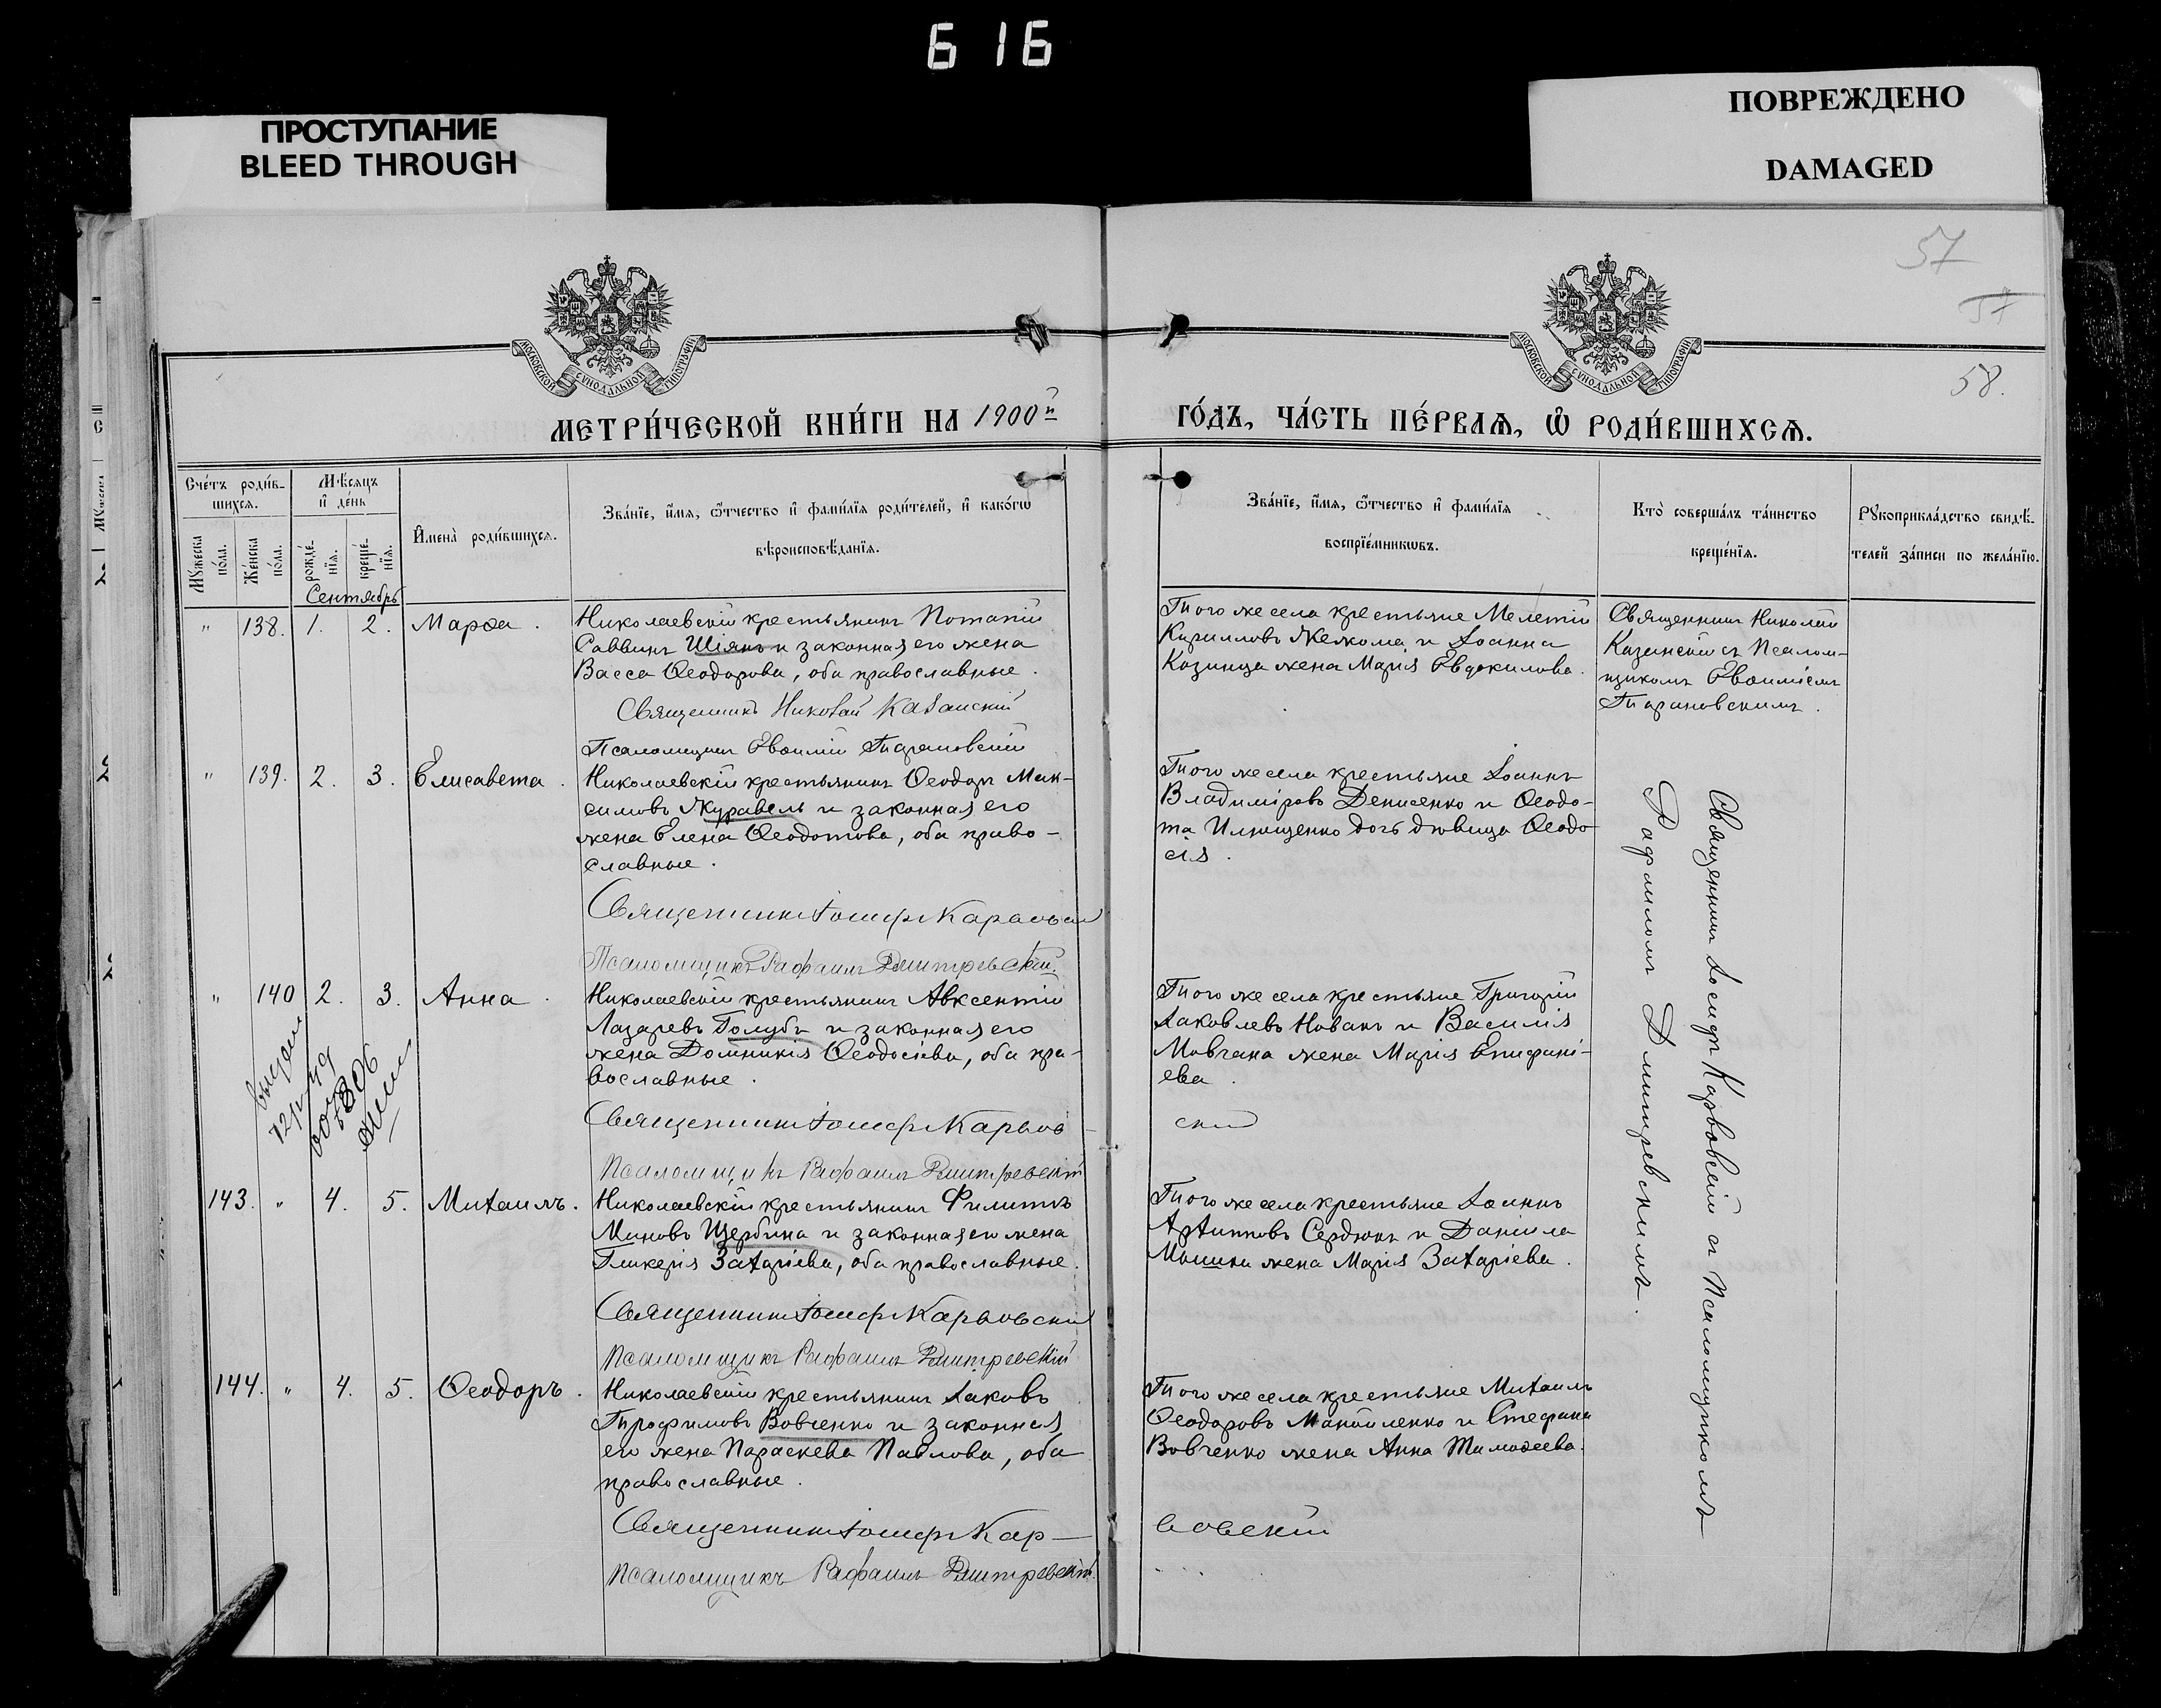 616
ПРОСТУПАНИЕ
BLEED THROUGH
ПОВРЕЖДЕНО
DAMAGED
57
58.
МОСКОВСКОЙ СУНОДАЛЬНОЙ ТИПОГРАФІИ
МОСКОВСКОЙ СУНОДАЛЬНОЙ ТИПОГРАФІИ
МЕТРИ́ЧЕСКОЙ КНИ́ГИ НА 1900й
ГО́ДЪ, ЧА́СТЬ ПЕ́РВАѦ, Ѡ҆ РОДИ́ВШИХСѦ.
Сче́тъ роди́в-
шихсѧ.
Мѣ́сѧцъ
и҆ де́нь
Мꙋжеска по́ла.
Же́нска по́ла.
рожде́-
нїѧ.
креще́-
нїѧ.
И҆мена̀ роди́вшихсѧ.
Зва́нїе, и҆́мѧ, ѻ҆́тчество и҆ фами́лїѧ роди́телей, и҆ како́гѡ
вѣроисповѣ́данїѧ.
Зва́нїе, и҆́мѧ, ѻ҆́тчество и҆ фами́лїѧ
воспрїе́мникѡвъ.
Кто̀ соверша́лъ та́инство
креще́нїѧ.
Рꙋкоприкла́дство свидѣ́-
телей за́писи по жела́нїю.
Сентябрь
" 138. 1. 2. Марѳа.
Николаевскій крестьянинъ Потапій
Саввинъ Шіянъ и законная его жена
Васса Ѳеодорова, оба православные.
Священникъ Николай Казанскій
Псаломщикъ Евѳимій Тарановскій
Того же села крестьяне Мелетій
Кирилловъ и Іоанна
Козинца жена Марія Евдокимова.
Священникъ Николай
Казанскій съ Псалом-
щикомъ Евѳиміемъ
Тарановскимъ.
" 139. 2. 3. Елисавета.
Николаевскій крестьянинъ Ѳеодоръ Мак-
симовъ Журавель и законная его
жена Елена Ѳеодотова, оба право-
славные.
Священникъ Іосифъ Карвовскій
Псаломщикъ Рафаилъ Дмитревскій.
Того же села крестьяне Іоаннъ
Владиміровъ Денисенко и Ѳеодо-
та Илющенко дочь дѣвица Ѳеодо
сія.
Священникъ Іосифъ Карвовскій съ Псаломщикомъ
Рафаиломъ Дмитревскимъ.
" 140 2. 3. Анна.
Николаевскій крестьянинъ Авксентій
Лазаревъ Голубъ и законная его
жена Домникія Ѳеодосіева, оба пра-
вославные.
Священникъ Іосифъ Карвов-
скій
Псаломщикъ Рафаилъ Дмитревскій
Того же села крестьяне Григорій
Іаковлевъ Новакъ и Василія
Мовчана жена Марія Епифані-
ева.
143. " 4. 5. Михаилъ.
Николаевскій крестьянинъ Филиппъ
Миновъ Щербина и законная его жена
Гликерія Захаріева, оба православные.
Священникъ Іосифъ Карвовскій
Псаломщикъ Рафаилъ Дмитревскій
Того же села крестьяне Іоаннъ
Архиповъ Сердюкъ и Даніила
жена Марія Захаріева.
144. " 4. 5. Ѳеодоръ.
Николаевскій крестьянинъ Іаковъ
Трофимовъ Вовченко и законная
его жена Параскева Павлова, оба
православные.
Священникъ Іосифъ Кар-
вовскій
Псаломщикъ Рафаилъ Дмитревскій.
Того же села крестьяне Михаилъ
Ѳеодоровъ Манойленко и Стефана
Вовченко жена Анна Тимоѳеева.